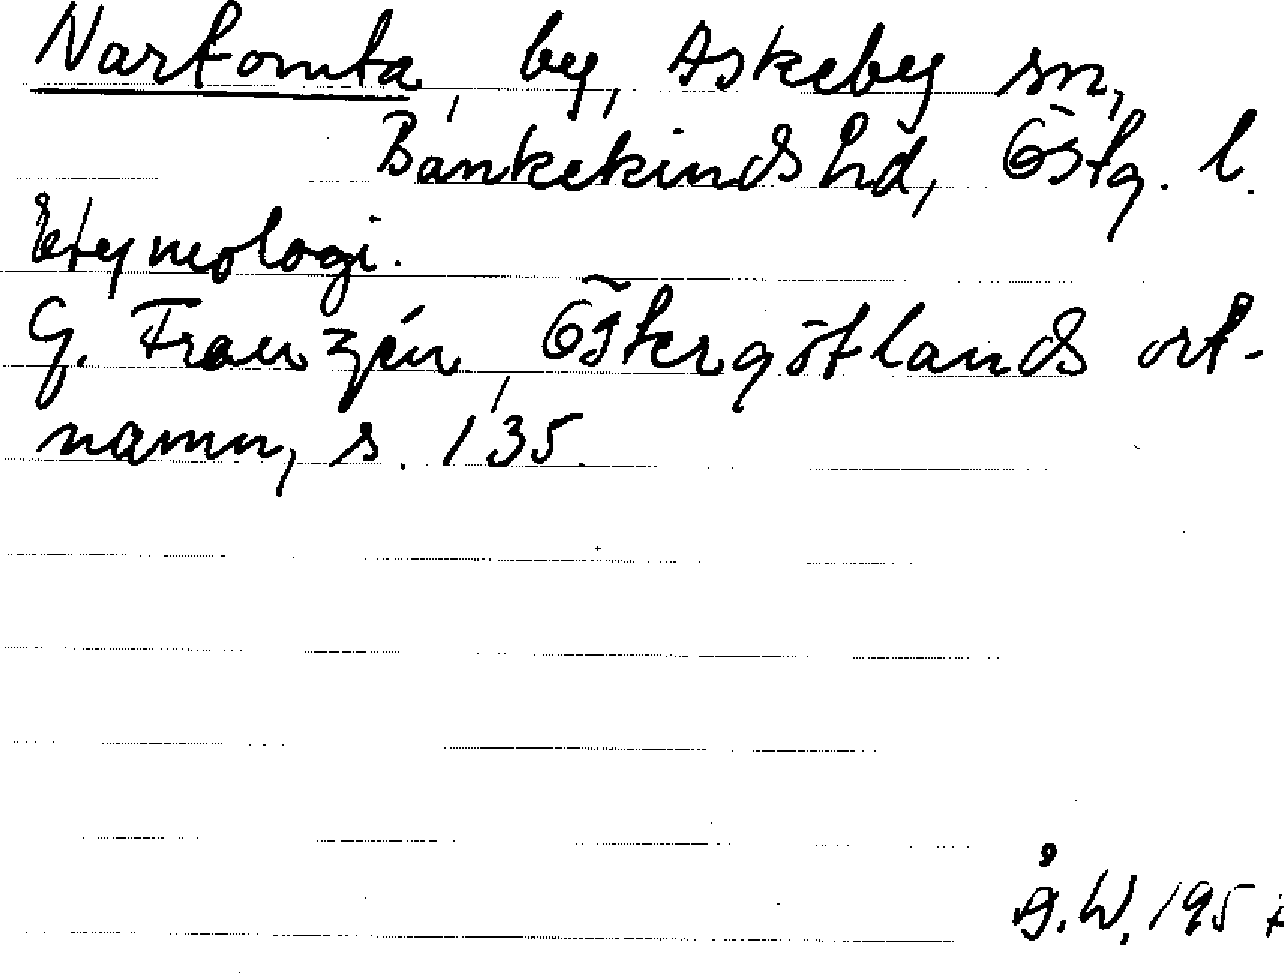 Nartomta, by, Askeby sn,
Bankekinds hd, Östg. l.
Etymologi.
G. Franzén, Östergötlands ort-
namn, s. 135.
Å.W. 195